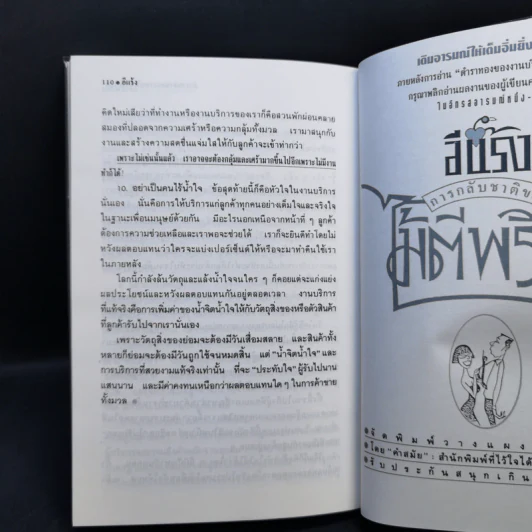 110 ● อีแร้ง
คิดใหม่เสียว่าที่ทำงานหรืองานบริการของเราก็คือสวนพักผ่อนคลาย
สมองที่ปลอดจากความเศร้าหรือความกลุ้มทั้งมวล เรามาสนุกกับ
งานและสร้างความสดชื่นแจ่มใสให้กับลูกค้าจะเข้าท่ากว่า
เพราะไม่เช่นนั้นแล้ว เราอาจจะต้องกลุ้มและเศร้ามากขึ้นไปอีกเพราะไม่มีงาน
ทำก็ได้
10. อย่าเป็นคนไร้น้ำใจ ข้อสุดท้ายนี้ก็คือหัวใจในงานบริการ
นั่นเอง นั่นคือการให้บริการแก่ลูกค้าทุกคนอย่างเต็มใจและจริงใจ
ในฐานะเพื่อนมนุษย์ด้วยกัน มีอะไรนอกเหนือจากหน้าที่ ๆ ลูกค้า
ต้องการความช่วยเหลือและเราพอจะช่วยได้ เราก็จะยินดีทำโดยไม่
หวังผลตอบแทนว่าใครจะแบ่งเปอร์เซ็นต์ให้หรือจะมาทำดีบใช้เรา
ในภายหลัง
โลกนี้กำลังล้นวัตถุและแล้งน้ำใจจนใคร ๆ ก็คอยแต่จะแก่งแย่ง
ผลประโยชน์และหวังผลตอบแทนกันอยู่ตลอดเวลา งานบริการ
ที่แท้จริงคือการเพิ่มค่าของน้ำจิตน้ำใจให้กับวัตถุสิ่งของหรือตัวสินค้า
ที่ลูกค้ารับไปจากเรานั่นเอง
เพราะวัตถุสิ่งของย่อมจะต้องมีวันเสื่อมสลาย และสินค้าทั้ง
หลายก็ย่อมจะต้องมีวันถูกใช้จนหมดสิ้น แต่ "น้ำจิตน้ำใจ" และ
การบริการที่สวยงามแท้จริงเท่านั้น ที่จะ "ประทับใจ" ผู้รับไปนาน
แสนนาน และมีค่าคงทนเหนือกว่าผลตอบแทนใด ๆ ในการค้าขาย
ทั้งมวล
เติมอารมณ์ให้เต็มอิ่มยิ่ง
ภายหลังการอ่าน "ตำราทองของงานบริ
กรุณาพลิกอ่านผลงานของผู้เขียนค
อีแร้ง
การกลับชาติข
ไม้ตีพริ
จัดพิมพ์วางแผง
โดย "คำสมัย" : สำนักพิมพ์ที่ไว้ใจได้
รับประกันสนุกเกิน